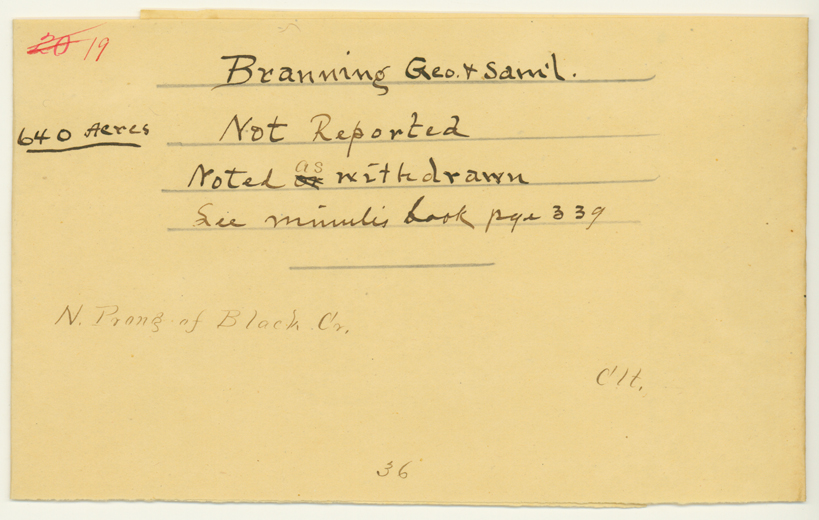 20 19
Branning Geo. & Sam'l.
640 Acres
Not Reported
Noted as withdrawn
See minutis book pge 339
N. Prong of Black Cr.
Clt.
36